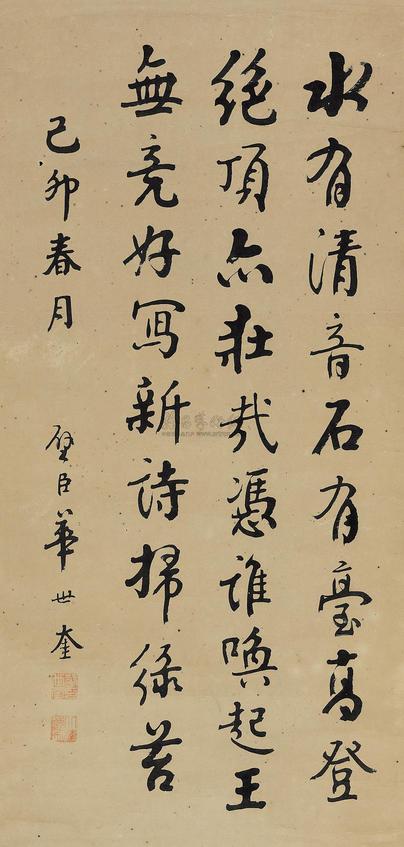 水有清音石有臺高登
絕頂亦壯哉憑誰喚起王
無竞好寫新詩掃綠苔
己卯春月 璧臣華世奎